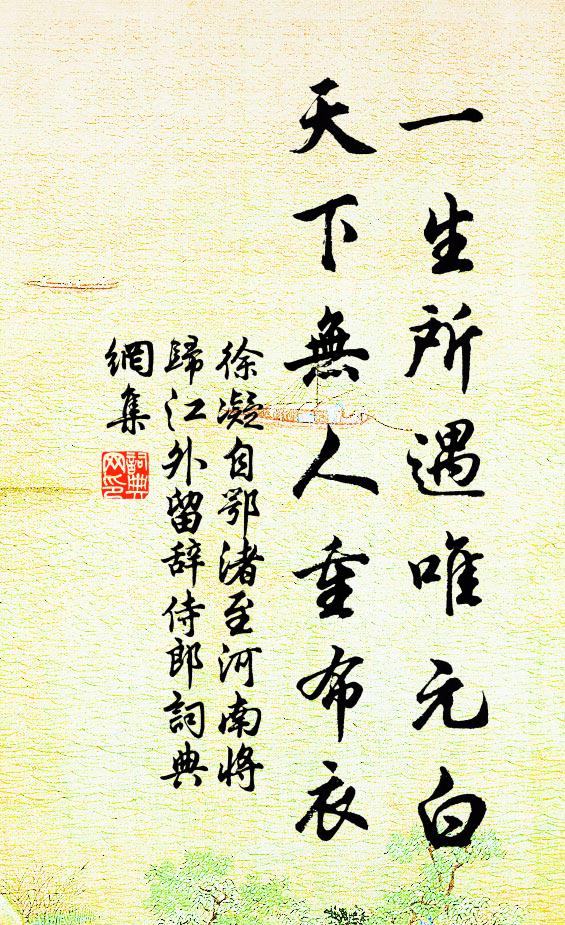 一生所遇唯元白
天下無人重布衣
徐凝自鄂渚至河南將
歸江外留辞侍郎詞典
網集
詞典
网印